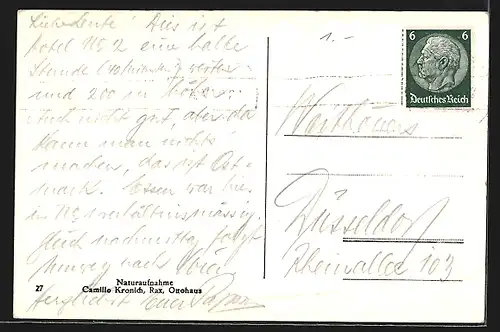 Liebe Leute! Dies ist
Hotel No 2 eine halbe
Stunde (40 Minuten) weiter
und 200 m höher.
Auch nicht gut, aber da
kann man nichts
machen, das ist Ost-
mark. Essen war hier
in No 1 verhältnismässig
gleich nachmittag folgt
nach
Herzlichst Euer Papa
27
Naturaufnahme
Camillo Kronich, Rax, Ottohaus
1.-
6 6
Deutsches Reich
Düsseldorf
Rheinallee 103